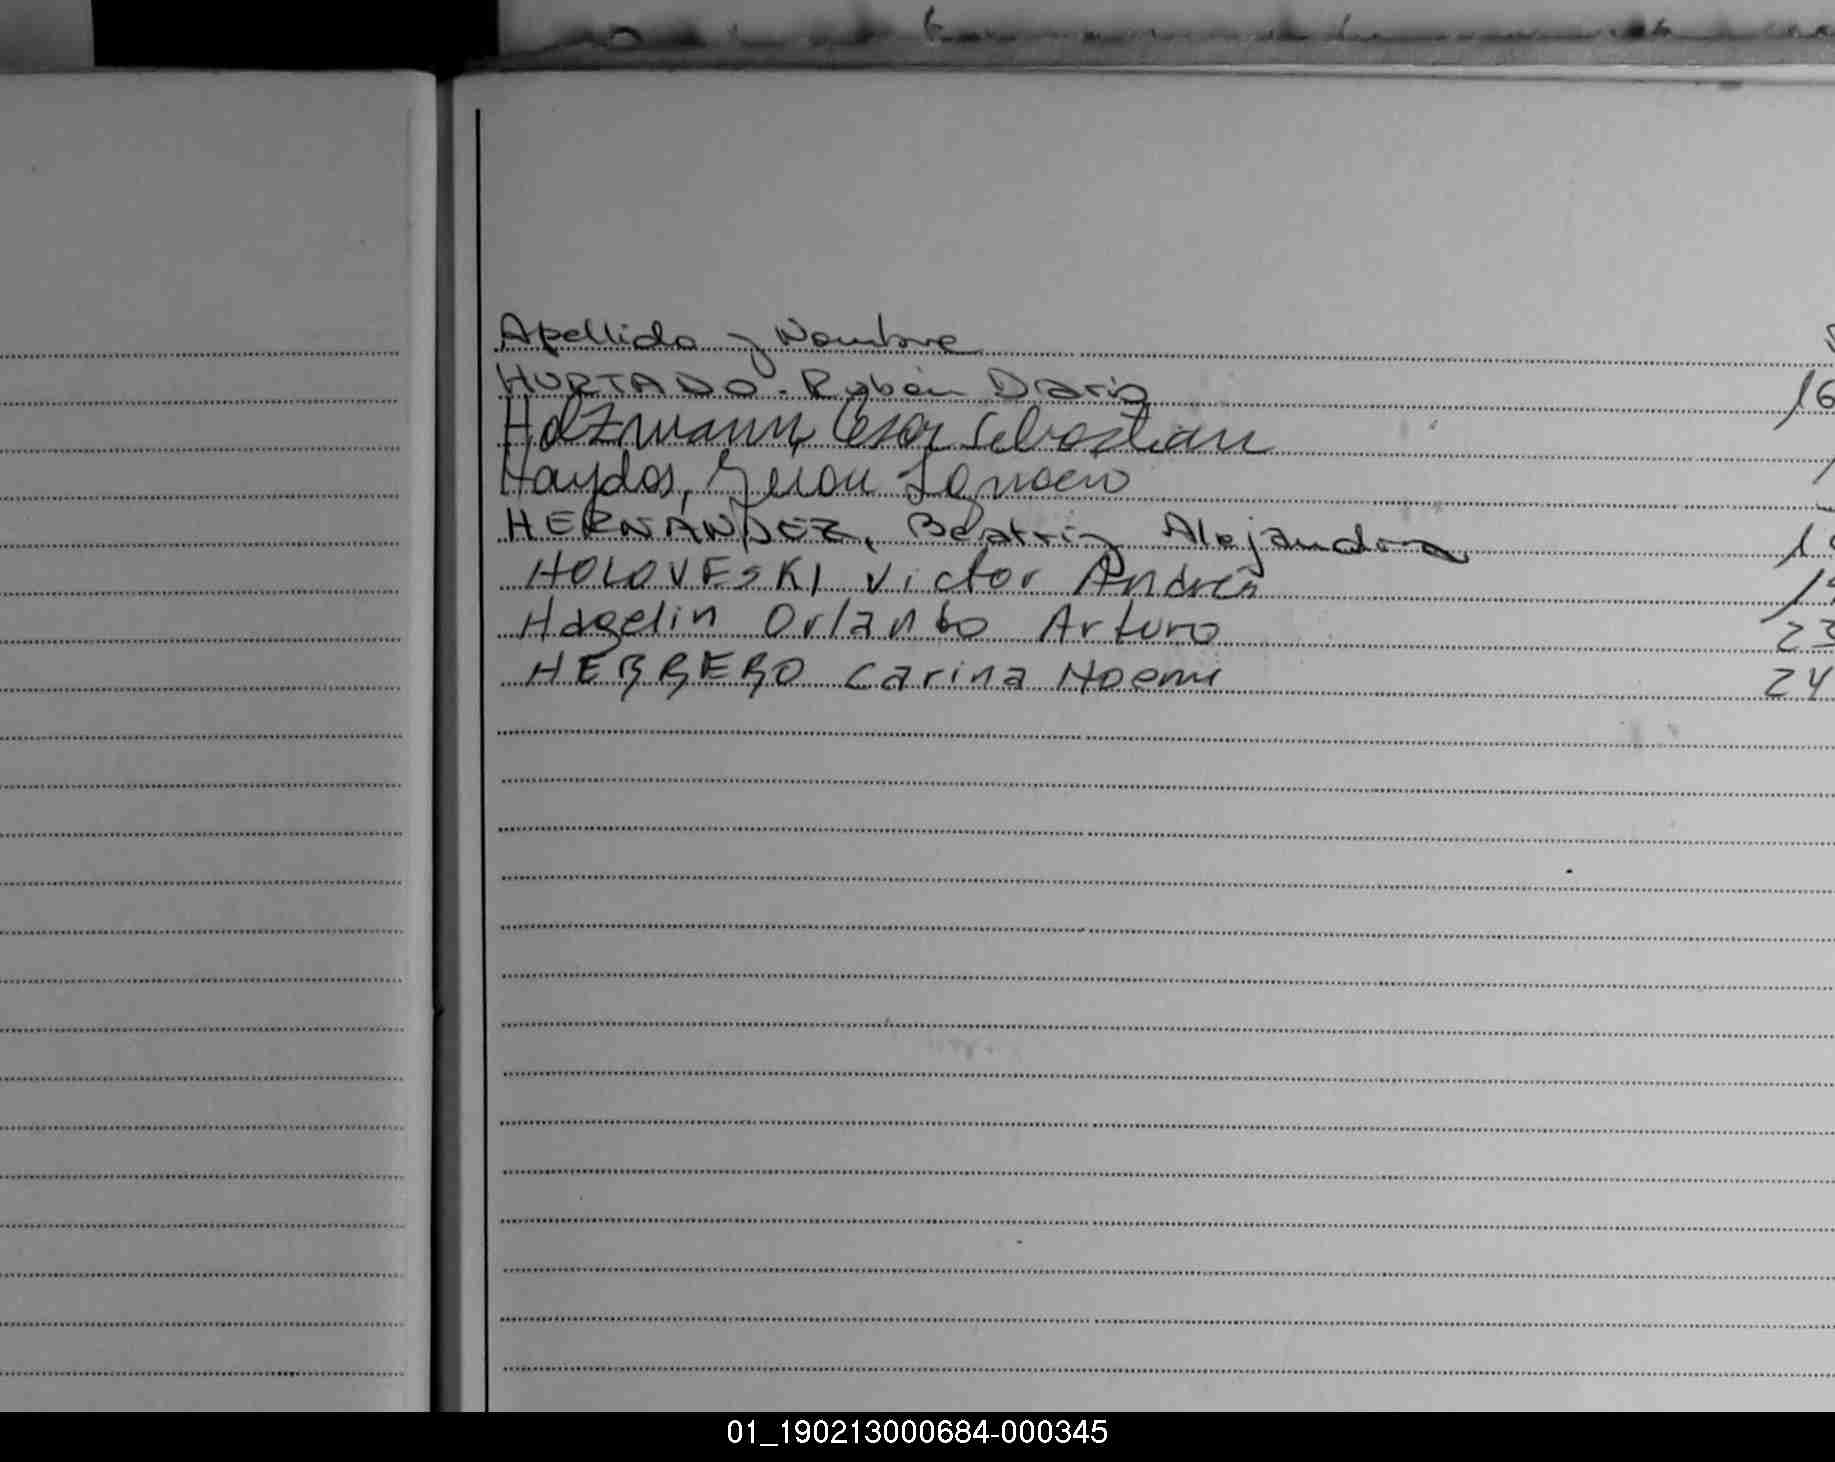 Apellido y Nombre
HURTADO. Rubén Dario 16
Holzmann, Cesar Sebastian
Haydos, Ignacio
HERNÁNDEZ, Beatriz Alejandra
HOLOVESKI Victor Andrés
Hagelin Orlando Arturo 23
HERRERO Carina Noemi 24
01_190213000684-000345